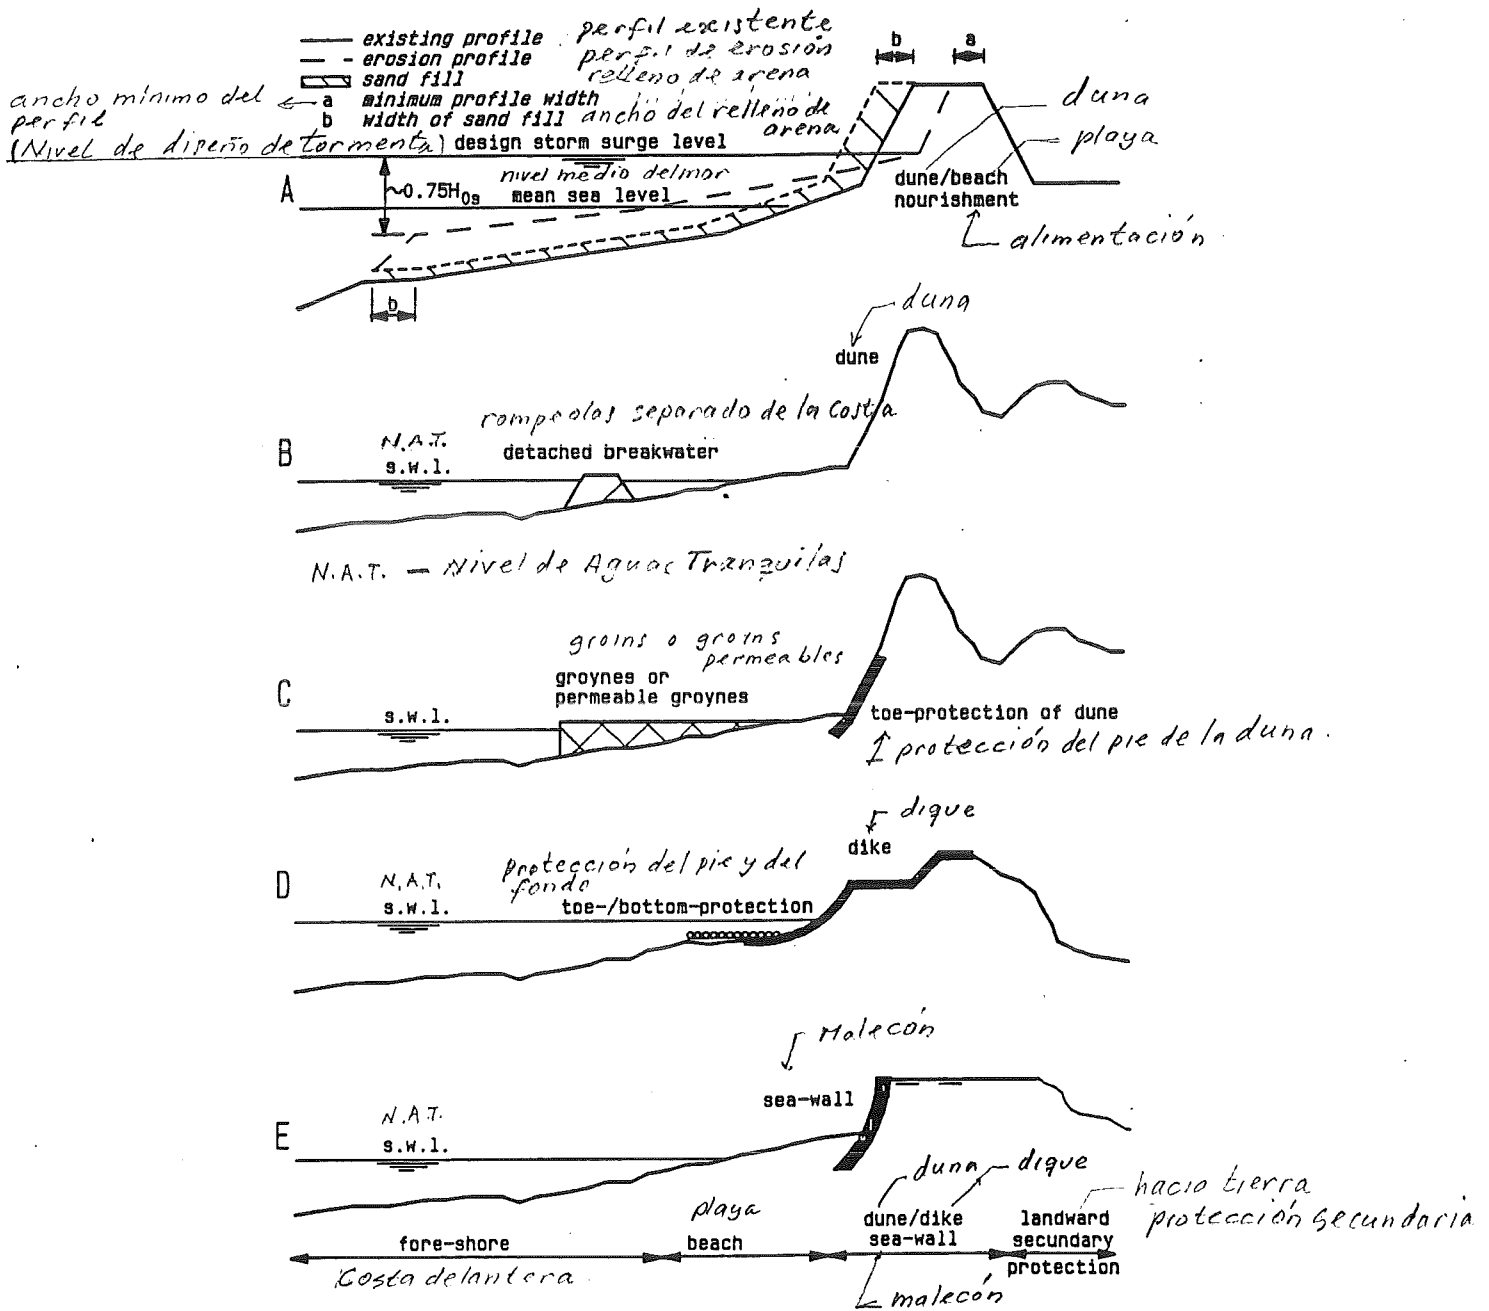 existing profile perfil existente
erosion profile perfil de erosión
sand fill relleno de arena
ancho mínimo del perfil
a minimum profile width
b width of sand fill ancho del relleno de arena
(Nivel de diseño de tormenta) design storm surge level
b
a
duna
playa
A
~0.75H0s
nivel medio del mar
mean sea level
dune/beach
nourishment
alimentación
b
duna
dune
rompeolas separado de la Costa
B
N.A.T.
s.w.l.
detached breakwater
N.A.T. — Nivel de Aguas Tranquilas
groins o groins
permeables
groynes or
permeable groynes
C
s.w.l.
toe-protection of dune
protección del pie de la duna.
dique
dike
protección del pie y del
fondo
D
N.A.T.
s.w.l.
toe-/bottom-protection
Malecón
sea-wall
E
N.A.T.
s.w.l.
duna dique
hacia tierra
protección secundaria
playa
dune/dike
sea-wall
landward
secundary
protection
fore-shore
beach
Costa delantera
malecón